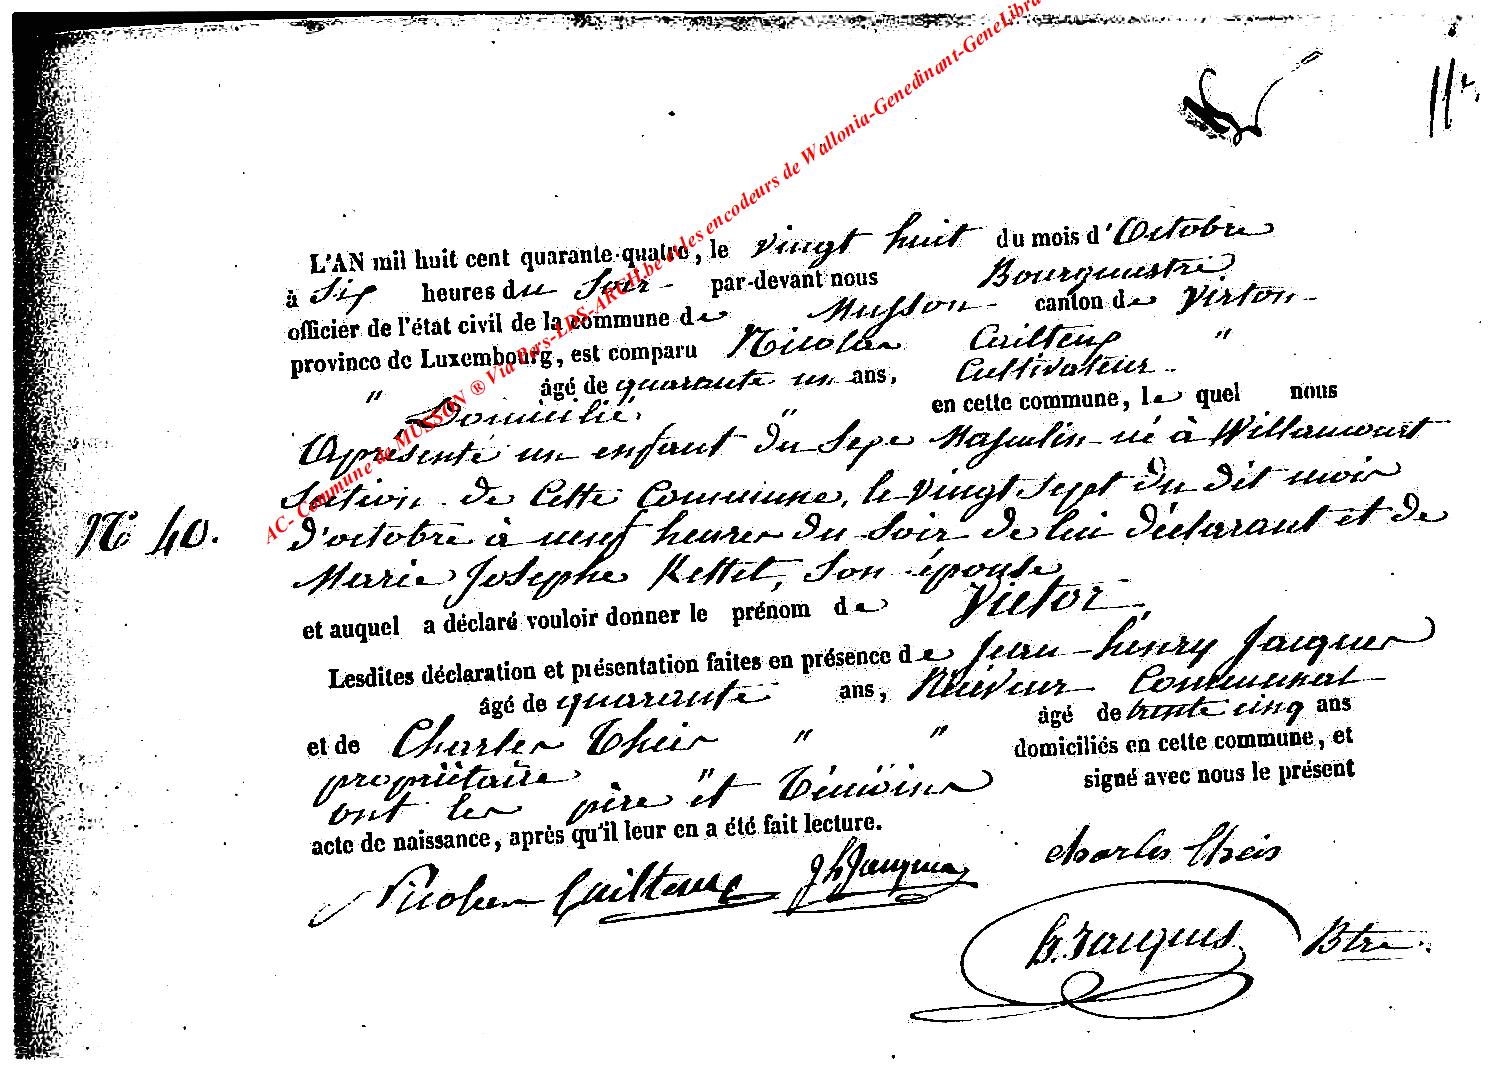 11r.
AC- Commune de MUSSON ® Via Pers-EDS-ARCH.be et les encodeurs de Wallonia-Genedinant-GeneLibra
L'AN mil huit cent quarante-quatre, le vingt huit du mois d'Octobre
à Six heures du Soir - par-devant nous Bourgmestre,
officier de l'état civil de la commune de Musson - canton de Virton -
province de Luxembourg, est comparu Nicolas Guilteux "
" âgé de quarante un ans, Cultivateur -
Domicilié " en cette commune, lequel nous
a présenté un enfant du Sexe Masculin né à Willancourt
Section de cette commune, le vingt sept du dit mois
N° 40. d'octobre à neuf heures du Soir de lui déclarant et de
Marie Josephe Kettel, Son épouse
et auquel a déclaré vouloir donner le prénom de Victor,
Lesdites déclaration et présentation faites en présence de Jean-henry Jacques
âgé de quarante ans, Receveur Communal
et de Charles Theis " " âgé de trente cinq ans
propriétaire " domiciliés en cette commune, et
ont les père et Témoins signé avec nous le présent
acte de naissance, après qu'il leur en a été fait lecture.
Nicolas Guilteux J h Jacques Charles Theis
h. Jacques Btre